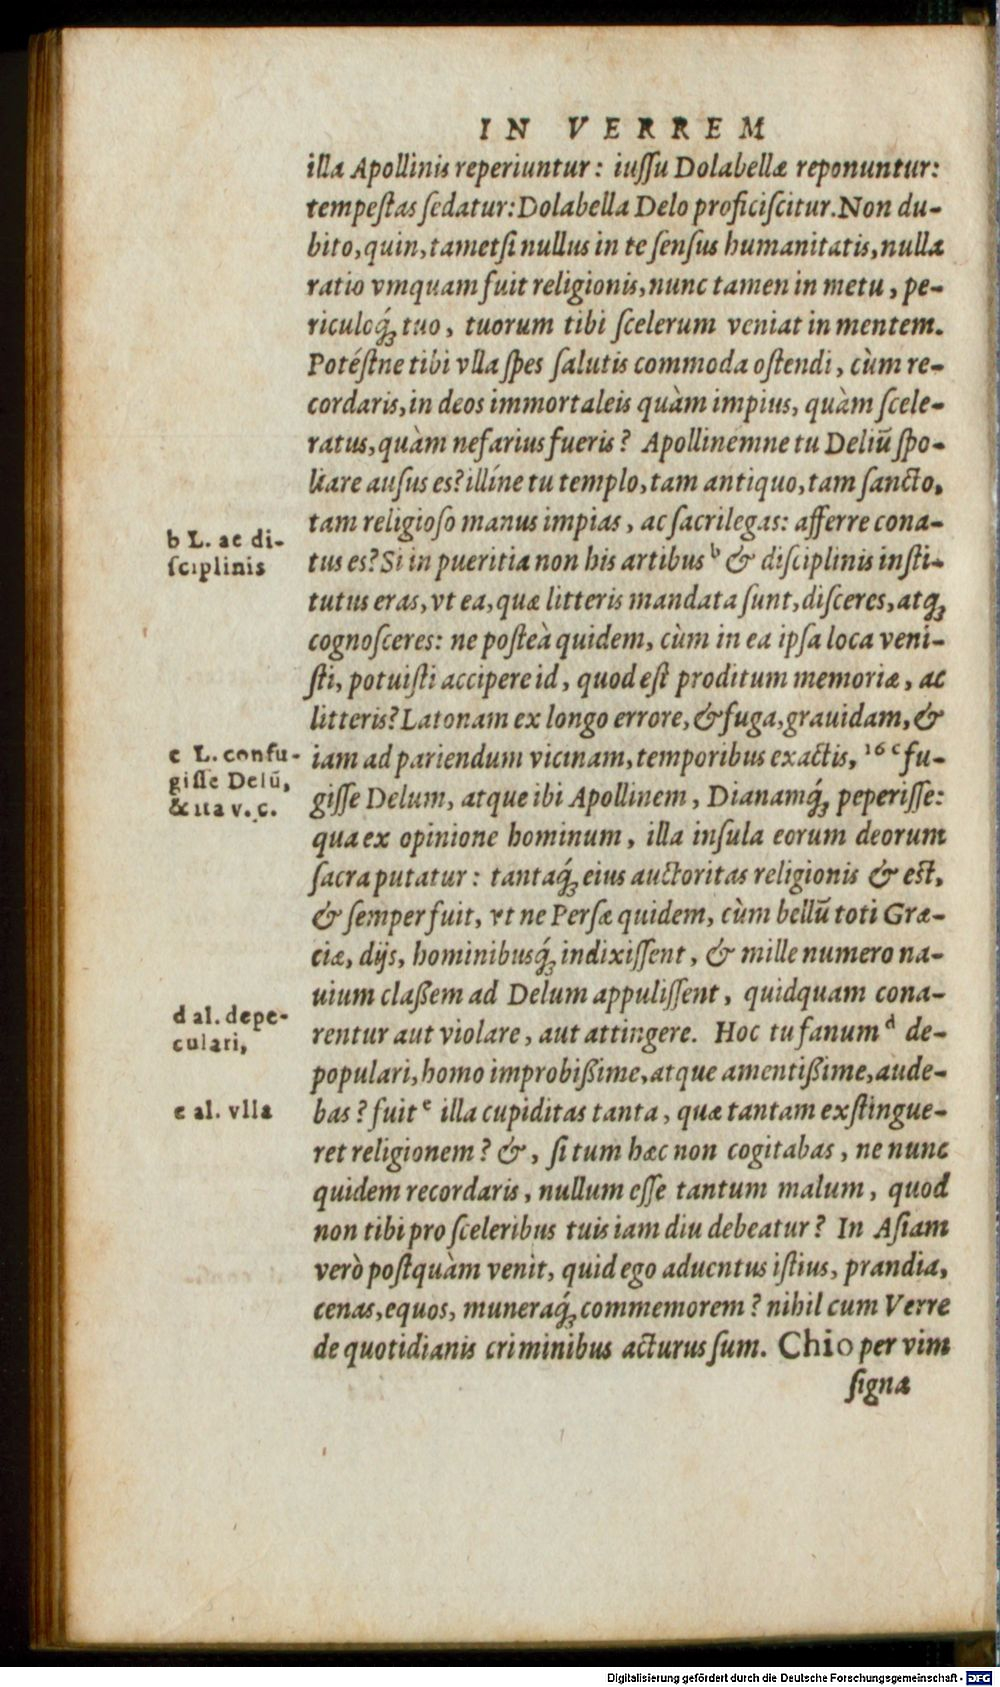 IN VERREM
illa Apollinis reperiuntur: iuſſu Dolabellæ reponuntur:
tempeſtas ſedatur: Dolabella Delo proficiſcitur. Non du-
bito, quin, tametſi nullus in te ſenſus humanitatis, nulla
ratio vmquam fuit religionis, nunc tamen in metu, pe-
riculoq́ꝫ tuo, tuorum tibi ſcelerum veniat in mentem.
Potéſtne tibi vlla ſpes ſalutis commoda oſtendi, cùm re-
cordaris, in deos immortaleis quàm impius, quàm ſcele-
ratus, quàm nefarius fueris? Apollinemne tu Deliū ſpo-
liare auſus es? illíne tu templo, tam antiquo, tam ſancto,
tam religioſo manus impias, ac ſacrilegas: afferre cona-
b L. ac di-
ſciplinis
tus es? Si in pueritia non his artibus b & diſciplinis inſti-
tutus eras, vt ea, quæ litteris mandata ſunt, diſceres, atqꝫ
cognoſceres: ne poſteà quidem, cùm in ea ipſa loca veni-
ſti, potuiſti accipere id, quod eſt proditum memoriæ, ac
litteris? Latonam ex longo errore, & fuga, grauidam, &
c L. confu-
giſſe Delū,
& ita v. c.
iam ad pariendum vicinam, temporibus exactis, 16 c fu-
giſſe Delum, atque ibi Apollinem, Dianamq́ꝫ peperiſſe:
qua ex opinione hominum, illa inſula eorum deorum
ſacra putatur: tantaq́ꝫ eius auctoritas religionis & eſt,
& ſemper fuit, vt ne Perſæ quidem, cùm bellū toti Græ-
ciæ, dijs, hominibusq́ꝫ indixiſſent, & mille numero na-
uium claßem ad Delum appuliſſent, quidquam cona-
d al. depe-
culari,
rentur aut violare, aut attingere. Hoc tu fanum d de-
populari, homo improbißime, atque amentißime, aude-
e al. vlla
bas? fuit e illa cupiditas tanta, quæ tantam exſtingue-
ret religionem? &, ſi tum hæc non cogitabas, ne nunc
quidem recordaris, nullum eſſe tantum malum, quod
non tibi pro ſceleribus tuis iam diu debeatur? In Aſiam
verò poſtquàm venit, quid ego aduentus iſtius, prandia,
cenas, equos, muneraq́ꝫ commemorem? nihil cum Verre
de quotidianis criminibus acturus ſum. Chio per vim
ſigna
Digitalisierung gefördert durch die Deutsche Forschungsgemeinschaft - DFG